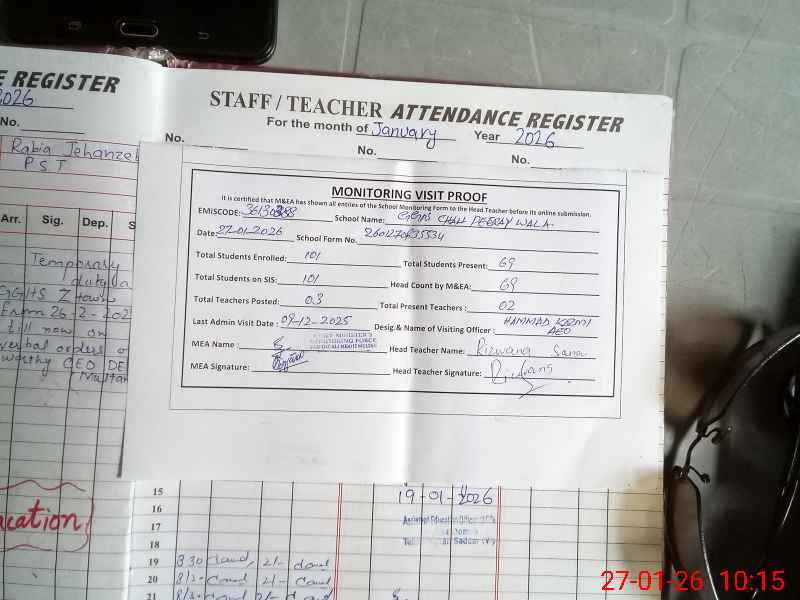 E REGISTER
2026
No.
Rabia Jehanzeb
PST
Arr. Sig. Dep. S
Temporary
duty a
GGHS Z town
till now on
verbal orders o
worthy CEO DE
cation
STAFF / TEACHER ATTENDANCE REGISTER
For the month of January Year 2026
No. No. No.
MONITORING VISIT PROOF
It is certified that M&EA has shown all entries of the School Monitoring Form to the Head Teacher before its online submission.
EMISCODE: School Name: CHAH DEERAY WALA
Date: 27-01-2026 School Form No.
Total Students Enrolled: 101 Total Students Present: 69
Total Students on SIS: 101 Head Count by M&EA: 69
Total Teachers Posted: 03 Total Present Teachers : 02
Last Admin Visit Date : 09-12-2025 Desig. & Name of Visiting Officer : HAMMAD
AEO
MEA Name : Head Teacher Name: Rizwana Sana
MEA Signature: Head Teacher Signature:
15
19-01-2026
16
17
18
19
20
21
27-01-26 10:15